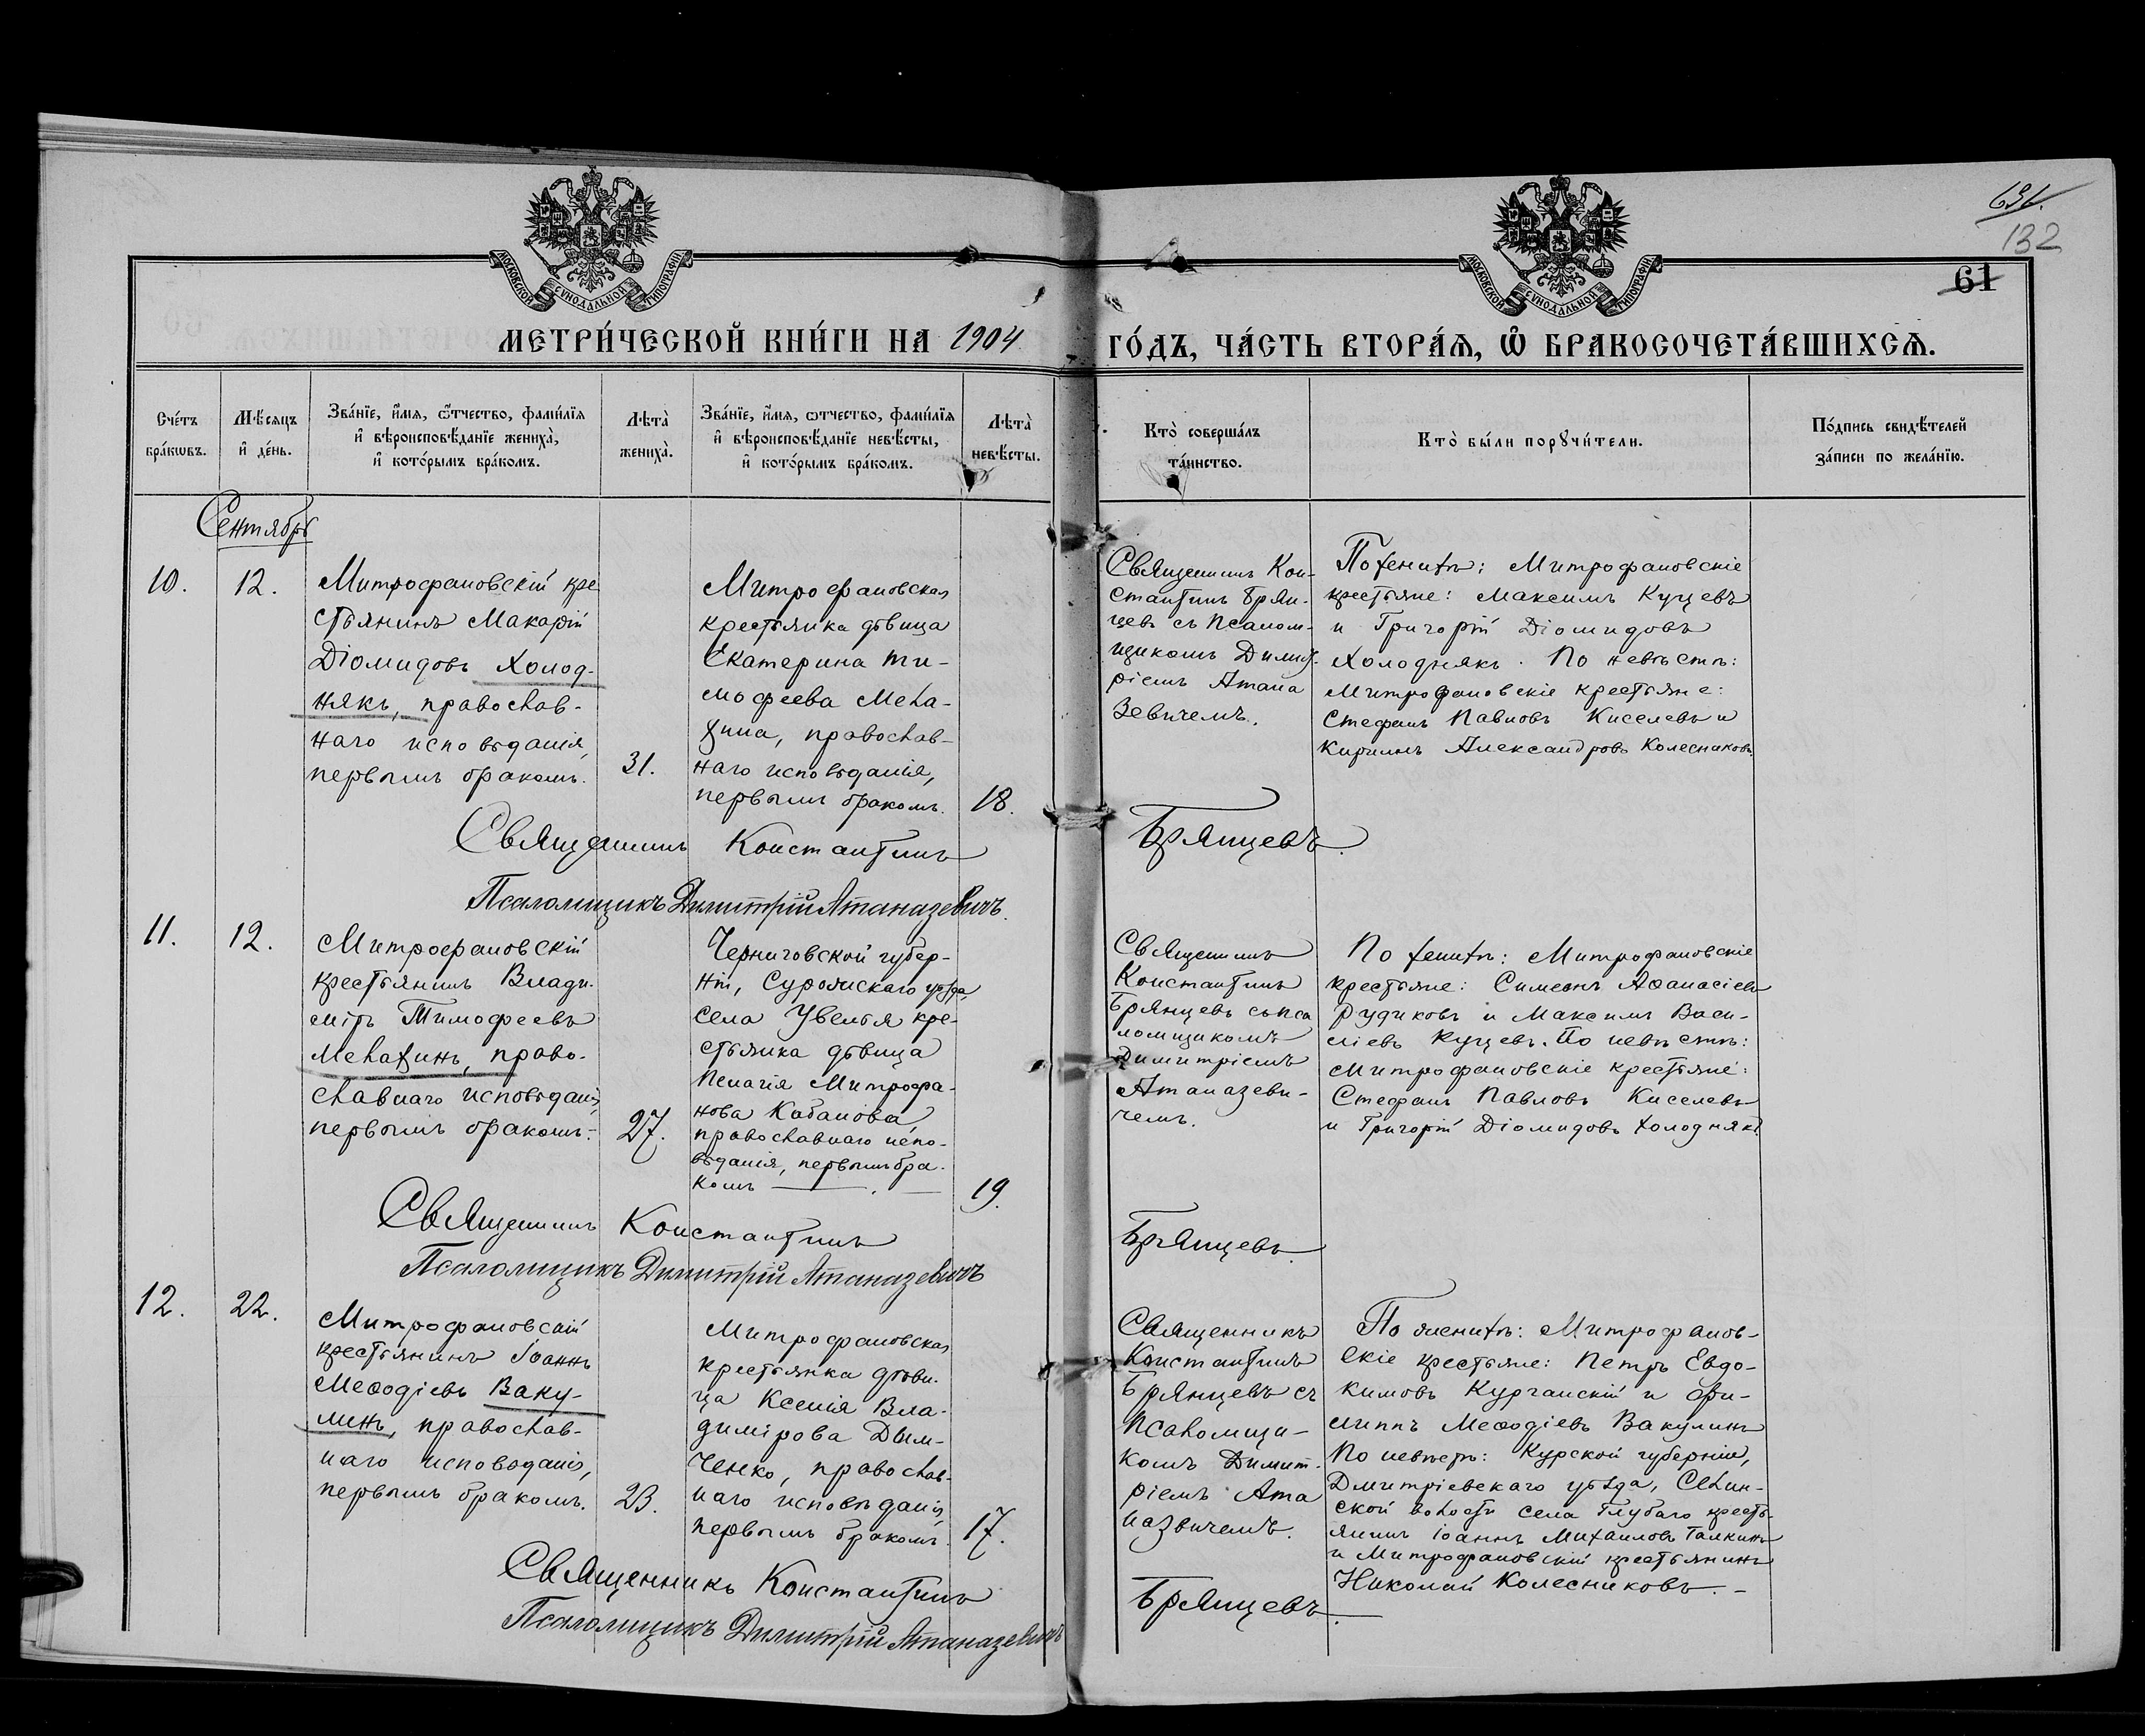 631.
132
61
МОСКОВСКОЙ СѴНОДАЛЬНОЙ ТИПОГРАФІИ
МОСКОВСКОЙ СѴНОДАЛЬНОЙ ТИПОГРАФІИ
МЕТРИ́ЧЕСКОЙ КНИ́ГИ НА 1904
ГО́ДЪ, ЧА́СТЬ ВТОРА́Я, Ѡ҆ БРАКОСОЧЕТА́ВШИХСЯ.
Сче́тъ
бра́кѡвъ.
Мѣ́сяцъ
и҆ де́нь.
Зва́нїе, и҆́мя, ѻ҆́тчество, фами́лїя
и҆ вѣроисповѣ́данїе жениха̀,
и҆ кото́рымъ бра́комъ.
Лѣта̀
жениха̀.
Зва́нїе, и҆́мя, ѻтчество, фами́лїя
и҆ вѣроисповѣ́данїе невѣ́сты,
и҆ кото́рымъ бра́комъ.
Лѣта̀
невѣ́сты.
Кто̀ соверша́лъ
та́инство.
Кто̀ бы́ли порꙋчи́тели.
По́дпись свидѣ́телей
за́писи по жела́нїю.
Сентябрь
10.
12.
Митрофановскій кре
стьянинъ Макарій
Діомидовъ Холод-
някъ, православ-
наго исповѣданія,
первымъ бракомъ.
31.
Митрофановская
крестьянка дѣвица
Екатерина Ти-
мофеева Мела-
хина, православ-
наго исповѣданія,
первымъ бракомъ.
18.
Священникъ Кон-
стантинъ Брян-
цевъ съ Псалом-
щикомъ Димит-
ріемъ Атана
зевичемъ.
По женихѣ: Митрофановскіе
крестьяне: Максимъ Куцевъ
и Григорій Діомидовъ
Холоднякъ. По невѣстѣ:
Митрофановскіе крестьяне:
Стефанъ Павловъ Киселевъ и
Кириллъ Александровъ Колесниковъ.
Священникъ Константинъ Брянцевъ.
Псаломщикъ Димитрій Атаназевичъ.
11.
12.
Митрофановскій
крестьянинъ Влади-
міръ Тимофеевъ
Мелахинъ, право-
славнаго исповѣданія,
первымъ бракомъ.-
27.
Черниговской губер-
ніи, Суражскаго уѣзда,
села Увелья кре-
стьянка дѣвица
Пелагія Митрофа-
нова Кабанова
православнаго испо-
вѣданія, первымъ бра-
комъ —.—
19.
Священникъ
Константинъ
Брянцевъ съ пса
ломщикомъ
Димитріемъ
Атаназеви-
чемъ.
По женихѣ: Митрофановскіе
крестьяне: Симеонъ Аѳанасіевъ
Рудиковъ и Максимъ Васи-
ліевъ Куцевъ. По невѣстѣ:
Митрофановскіе крестьяне:
Стефанъ Павловъ Киселевъ
и Григорій Діомидовъ Холоднякъ.
Священникъ Константинъ Брянцевъ
Псаломщикъ Димитрій Атаназевичъ
12.
22.
Митрофановскій
крестьянинъ Іоаннъ
Меѳодіевъ Ваку-
линъ, православ-
наго исповѣданія,
первымъ бракомъ.
23.
Митрофановская
крестьянка дѣви-
ца Ксенія Вла-
димірова Дым-
ченко, православ-
наго исповѣданія,
первымъ бракомъ.
17.
Священникъ
Константинъ
Брянцевъ съ
Псаломщи-
комъ Димит-
ріемъ Ата
назвичемъ.
По женихѣ: Митрофанов-
скіе крестьяне: Петръ Евдо-
кимовъ Курганскій и Фи-
липпъ Меѳодіевъ Вакулинъ
По невѣстѣ: Курской губерніи,
Дмитріевскаго уѣзда, Селин-
ской волости села Глубаго кресть-
янинъ Іоаннъ Михаиловъ Галкинъ
и Митрофановскій крестьянинъ
Николай Колесниковъ.-
Священникъ Константинъ Брянцевъ.
Псаломщикъ Димитрій Атаназевичъ